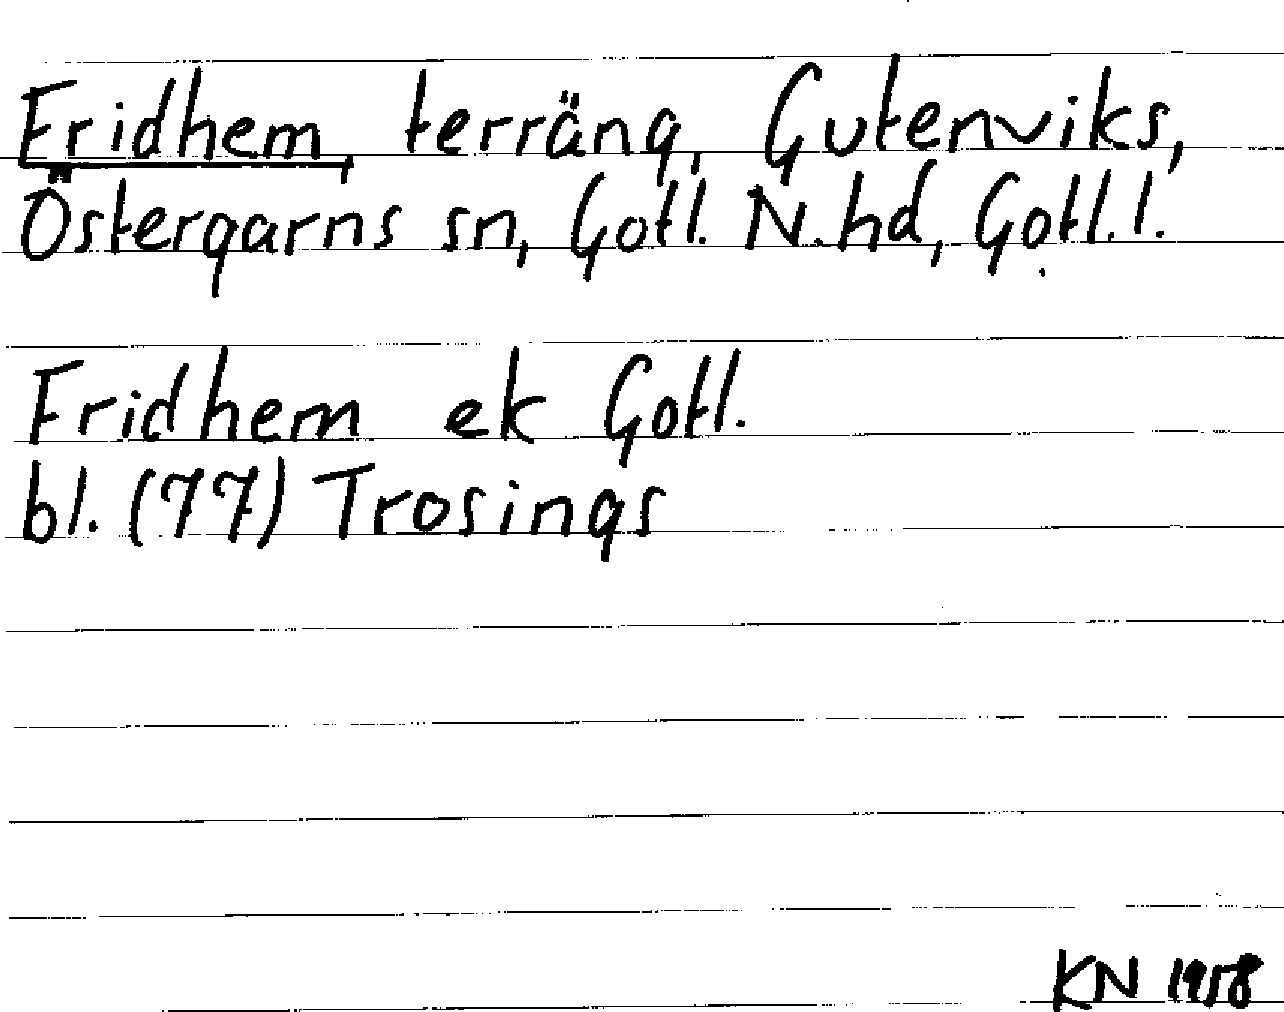 Fridhem, terräng, Gutenviks,
Östergarns sn, Gotl. N. hd, Gotl. l.
Fridhem ek Gotl.
bl. (77) Trosings
KN 1958